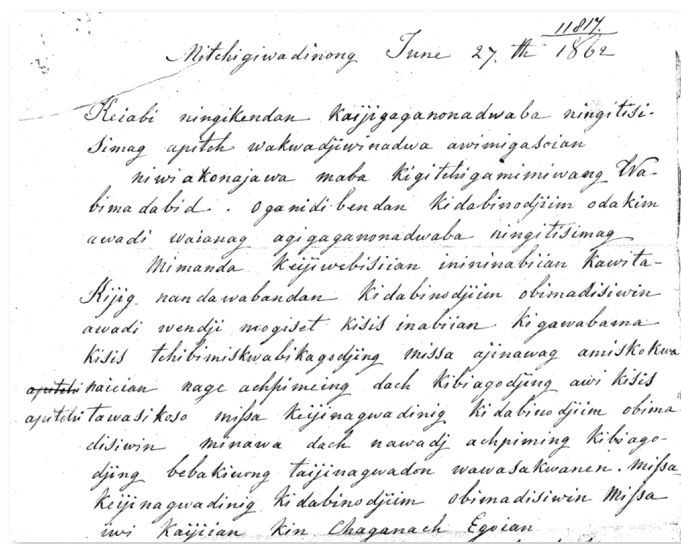 11817.
Mitchigiwadinong June 27. th 1862
Keiabi ningikendan kaijigaganonadwaba ningitisi-
simag apitch wakwadjiwinadwa awimigasoian
niwiakonajawa maba kigitchigamimiwang Wa-
bimadabid. oganidibendan kidabinodjiim odakim
awadi waianag agigaganonadwaba ningitisimag
Mimanda keijiwebisiian inininabiian kawita-
Kijig nandawabandan kidabinodjiim obimadisiwin
awadi wendji mogiset kisis inabiian kigawabama
kisis tchibimiskwabikagodjing missa ajinawag amiskokwa
apitchi naician nage achpimeing dach kibiagodjing awi kisis
apitchi tawasikoso missa keijinagwadinig kidabinodjiim obima
disiwin minawa dach nawadj achpiming kibiago-
djing bebakiwong taijinagwadon wawasakwanen. Missa
keijinagwadinig kidabinodjiim obimadisiwin Missa
iwi kaijiian kin Chaganach Egoian